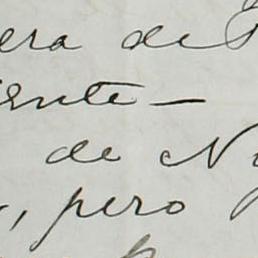 era de
ente —
de N
, pero